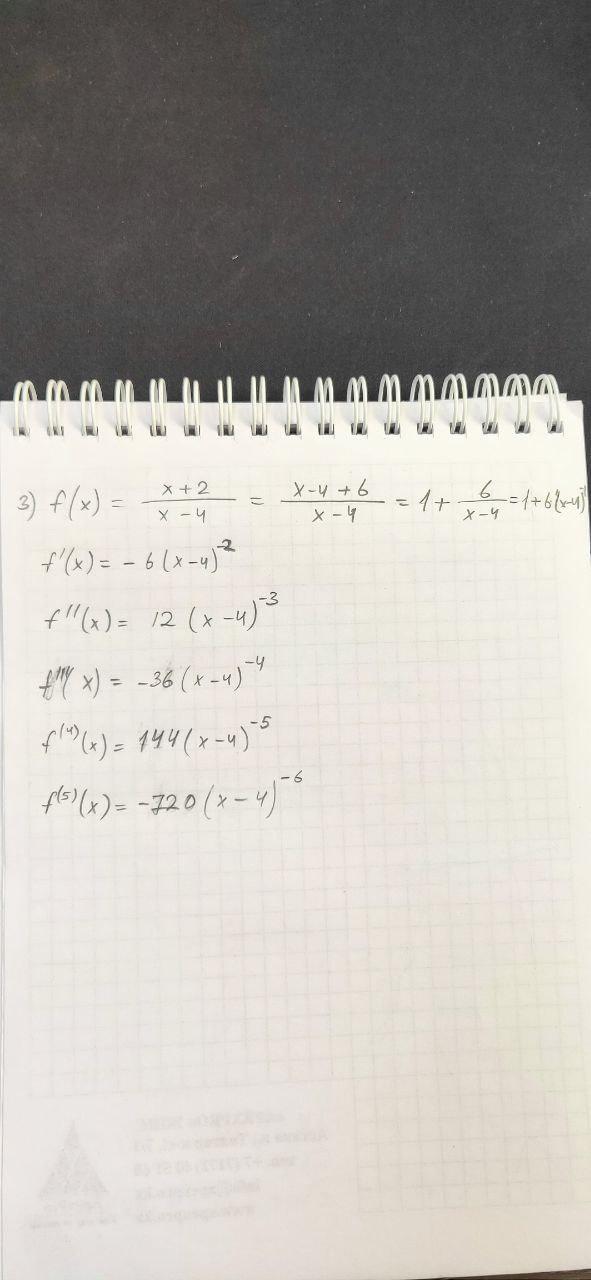 3) f(x) = \frac{x+2}{x-4} = \frac{x-4+6}{x-4} = 1 + \frac{6}{x-4} = 1+6(x-4)^{-1}
f'(x) = -6(x-4)^{-2}
f''(x) = 12(x-4)^{-3}
f'''(x) = -36(x-4)^{-4}
f^{(4)}(x) = 144(x-4)^{-5}
f^{(5)}(x) = -720(x-4)^{-6}